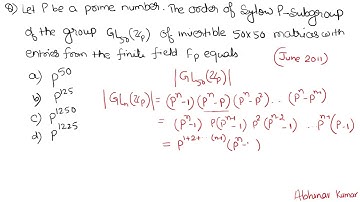 Q) Let P be a prime number. The order of Sylow P-Subgroup
of the group GL₅₀(ℤₚ) of invertible 50x50 matrices with
entries from the finite field Fₚ equals
(June 2011)
a) p⁵⁰
b) p¹²⁵
c) p¹²⁵⁰
d) p¹²²⁵
|GL₅₀(ℤₚ)|
|GLₙ(ℤₚ)| = (pⁿ-1)(pⁿ-p)(pⁿ-p²)...(pⁿ-pⁿ⁻¹)
= (pⁿ-1) p(pⁿ⁻¹-1) p²(pⁿ⁻²-1)... pⁿ⁻¹(p-1)
= p¹⁺²⁺⋯⁽ⁿ⁻¹⁾(pⁿ- )
Abhinav Kumar